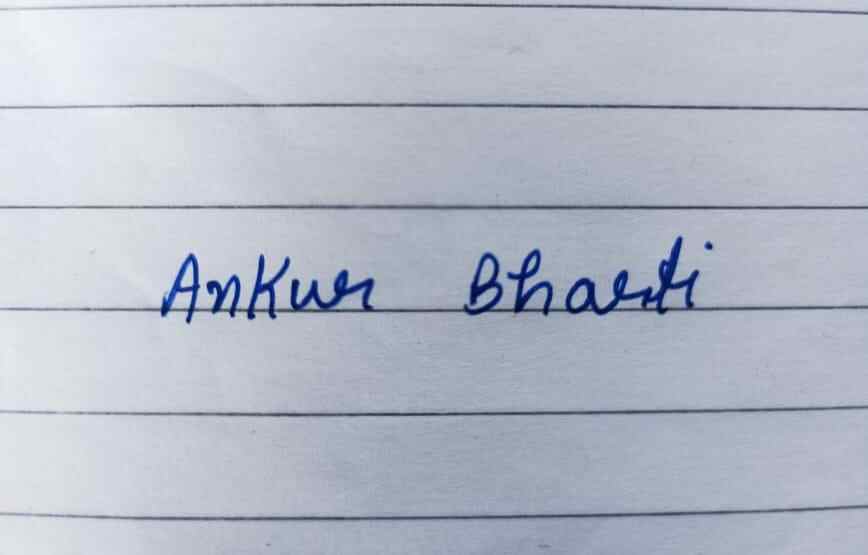 Ankur Bharti